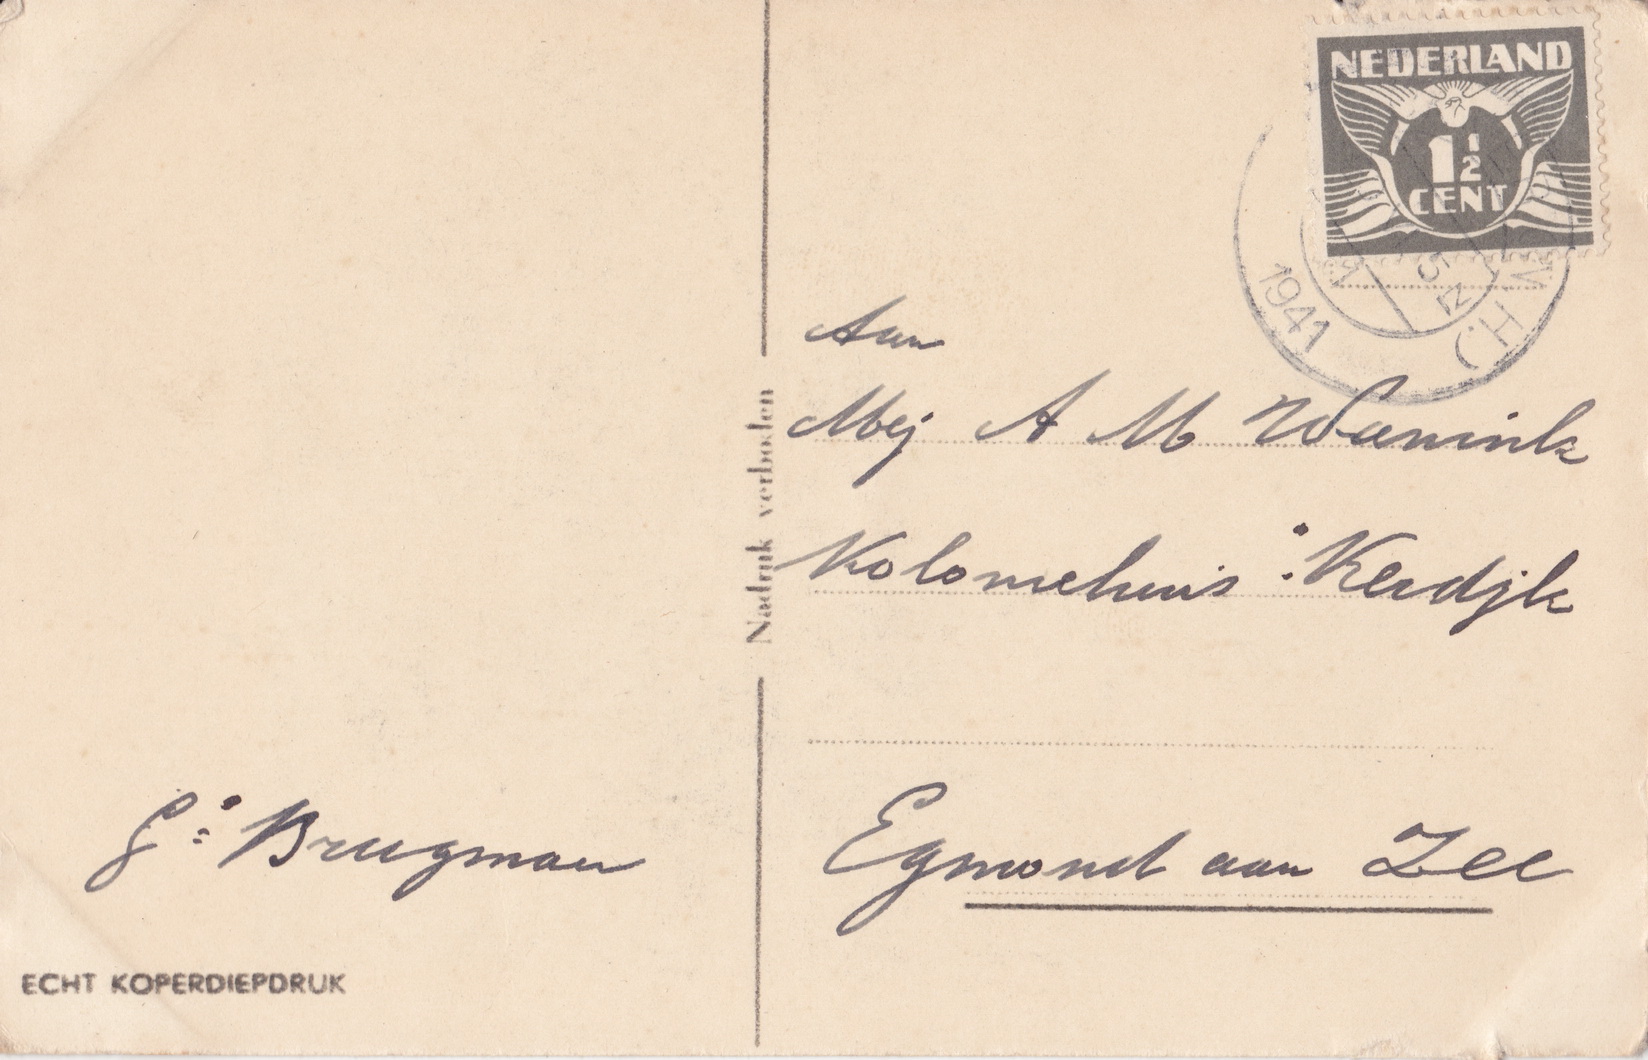 NEDERLAND
1½
CENT
1941
Aan
Mej A M Wannink
Koloniehuis :Kerdijk
Egmond aan Zee
Nadruk verboden
G: Brugman
ECHT KOPERDIEPDRUK